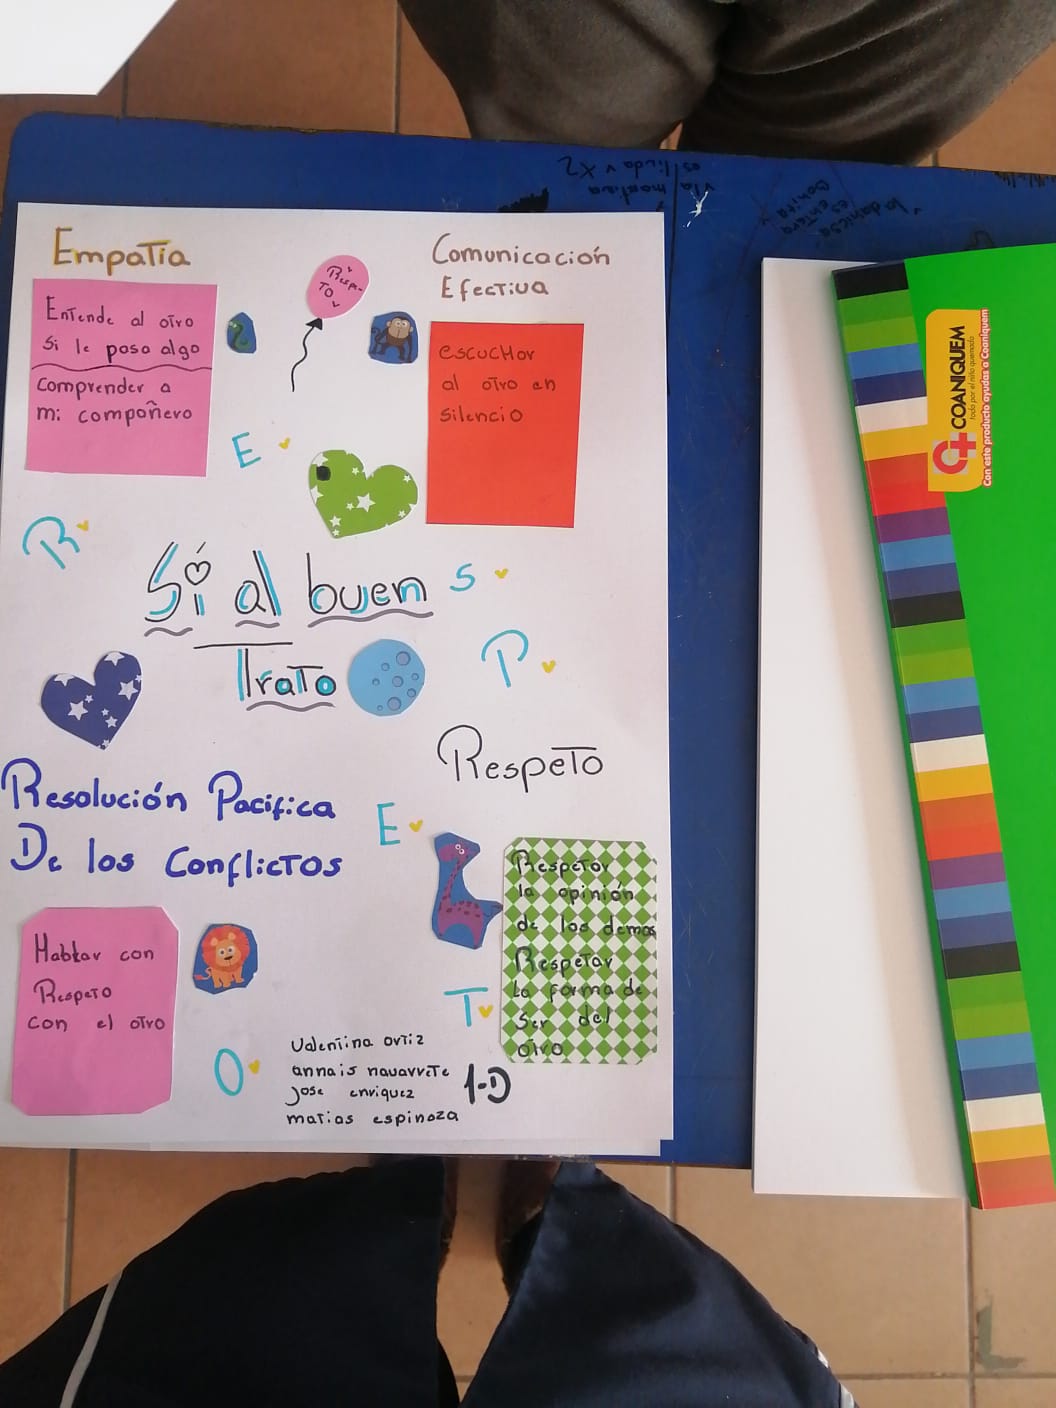 Empatía
Entende al otro
si le pasa algo
comprender a
mi compañero
Respe-
to
Comunicación
Efectiva
escuchar
al otro en
silencio
R
E
S
P
E
T
O
Sí al buen
Trato
Respeto
Respetar
la opinión
de los demas
Respetar
la forma de
ser del
otro
Resolución Pacifica
De los conflictos
Hablar con
Respeto
con el otro
valentina ortiz
annais navarrete
jose enriquez
matias espinoza
1-D
COANIQUEM
todo por el niño quemado
Con este producto ayudas a Coaniquem
v la martina
es linda v X2
v la daniesa
es entera
bonita v